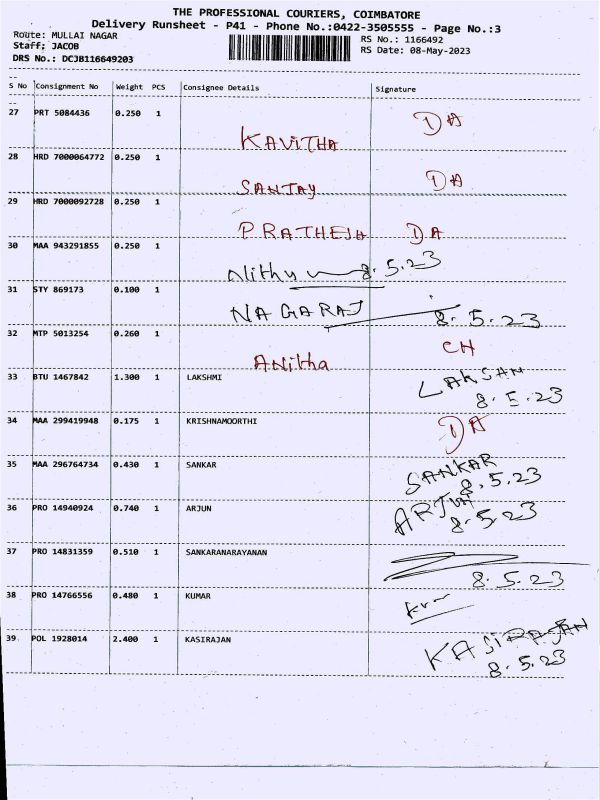 THE PROFESSIONAL COURIERS, COIMBATORE
Delivery Runsheet - P41 - Phone No.:0422-3505555 - Page No.:3
Route: MULLAI NAGAR
RS No.: 1166492
Staff: JACOB
RS Date: 08-May-2023
DRS No.: DCJB116649203
S No Consignment No Weight PCS Consignee Details Signature
27 PRT 5084436 0.250 1 DA
KAVITHA
28 HRD 7000064772 0.250 1 DA
SANJAY
29 HRD 7000092728 0.250 1
PRATHESH DA
30 MAA 943291855 0.250 1
Nithy 8.5.23
31 STY 869173 0.100 1
NAGARAJ 8.5.23
32 MTP 5013254 0.260 1 CH
Anitha
33 BTU 1467842 1.300 1 LAKSHMI LAKSAN
8.5.23
34 MAA 299419948 0.175 1 KRISHNAMOORTHI DA
35 MAA 296764734 0.430 1 SANKAR SANKAR
8.5.23
36 PRO 14940924 0.740 1 ARJUN ARJUN
8.5.23
37 PRO 14831359 0.510 1 SANKARANARAYANAN
8.5.23
38 PRO 14766556 0.480 1 KUMAR
39 POL 1928014 2.400 1 KASIRAJAN KASIRAJAN
8.5.23